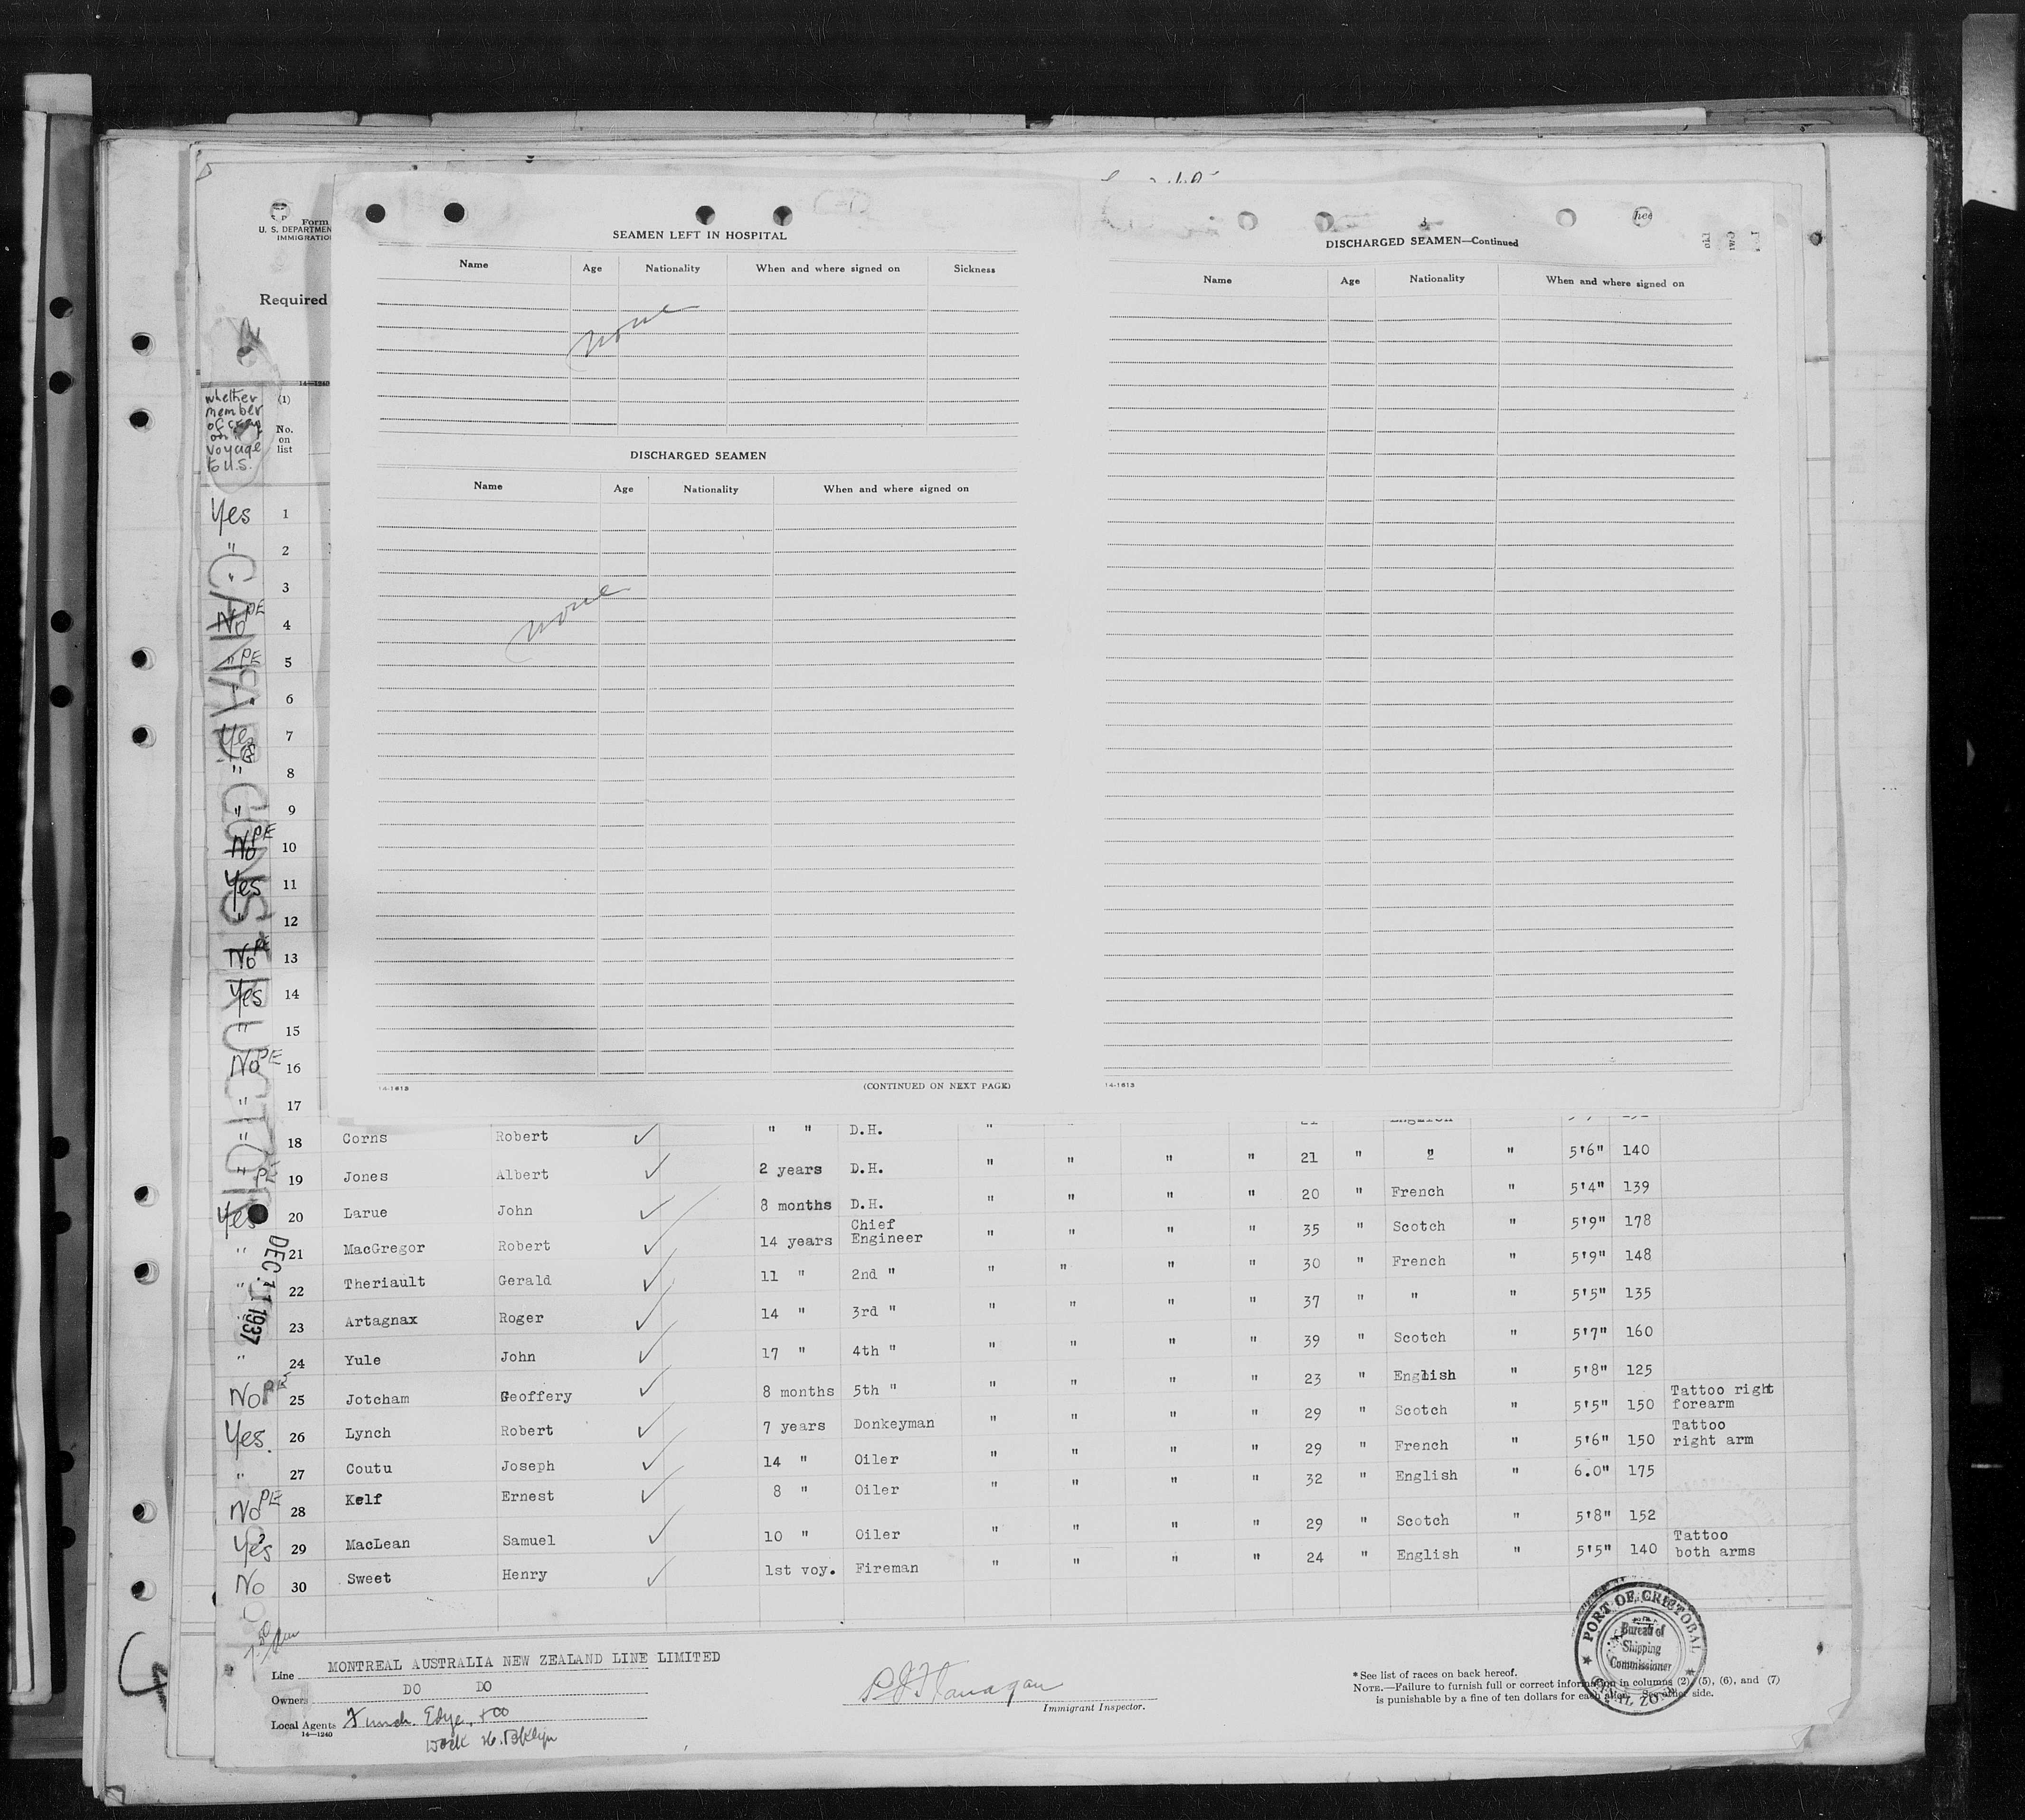 Form
U. S. DEPARTMEN
IMMIGRATIO
Required
14—1240
whether
member
of crew
on
voyage
to U.S.
(1)
No.
on
list
SEAMEN LEFT IN HOSPITAL
Name Age Nationality When and where signed on Sickness
none
DISCHARGED SEAMEN
Name Age Nationality When and where signed on
none
14-1613 (CONTINUED ON NEXT PAGE)
3
DISCHARGED SEAMEN—Continued
Name Age Nationality When and where signed on
14-1613
Yes 1
" 2
3
No PE 4
" PE 5
6
Yes 7
" 8
" 9
No PE 10
Yes 11
" 12
No PE 13
Yes 14
" 15
No PE 16
" 17
" 18 Corns Robert " " D.H. "
19 Jones Albert 2 years D.H. " " " " 21 " " " 5'6" 140
Yes 20 Larue John 8 months D.H. " " " " 20 " French " 5'4" 139
" 21 MacGregor Robert 14 years Chief Engineer " " " " 35 " Scotch " 5'9" 178
" 22 Theriault Gerald 11 " 2nd " " " " " 30 " French " 5'9" 148
23 Artagnax Roger 14 " 3rd " " " " " 37 " " " 5'5" 135
" 24 Yule John 17 " 4th " " " " " 39 " Scotch " 5'7" 160
No PE 25 Jotcham Geoffery 8 months 5th " " " " " 23 " English " 5'8" 125
Yes. 26 Lynch Robert 7 years Donkeyman " " " " 29 " Scotch " 5'5" 150 Tattoo right forearm
" 27 Coutu Joseph 14 " Oiler " " " " 29 " French " 5'6" 150 Tattoo right arm
No PE 28 Kelf Ernest 8 " Oiler " " " " 32 " English " 6.0" 175
Yes 29 MacLean Samuel 10 " Oiler " " " " 29 " Scotch " 5'8" 152
No 30 Sweet Henry 1st voy. Fireman " " " " 24 " English " 5'5" 140 Tattoo both arms
DEC 11 1937
Line MONTREAL AUSTRALIA NEW ZEALAND LINE LIMITED
Owners DO DO
Local Agents Funch. Edye, & co
14—1240
Immigrant Inspector.
*See list of races on back hereof.
NOTE.—Failure to furnish full or correct information in columns (2), (5), (6), and (7)
is punishable by a fine of ten dollars for each alien. See other side.
PORT OF CRISTOBAL
Bureau of
Shipping
Commissioner
CANAL ZONE